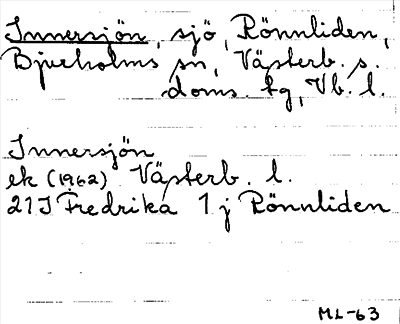 Innersjön, sjö, Rönnliden,
Bjurholms sn, Västerb. s.
doms. tg, Vb. l.
Innersjön
ek (1962) Västerb. l.
21J Fredrika 1 j Rönnliden
ML-63